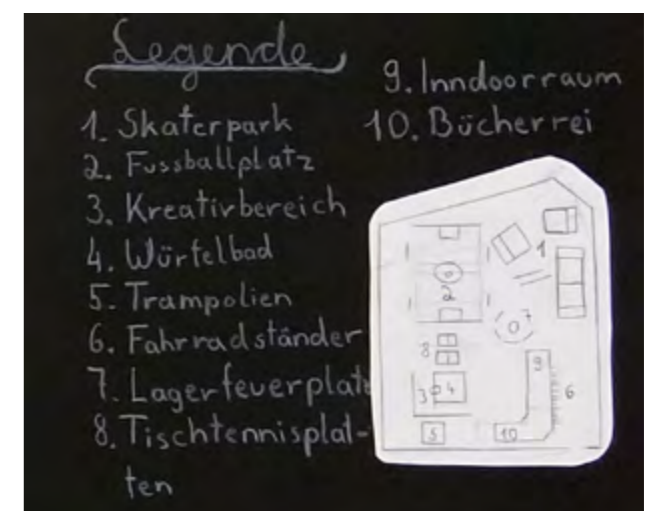 Legende
1. Skaterpark
2. Fussballplatz
3. Kreativbereich
4. Würfelbad
5. Trampolien
6. Fahrradständer
7. Lagerfeuerplatz
8. Tischtennisplat-
ten
9. Inndoorraum
10. Bücherrei
1
2
7
8
9
3 4
6
5
10